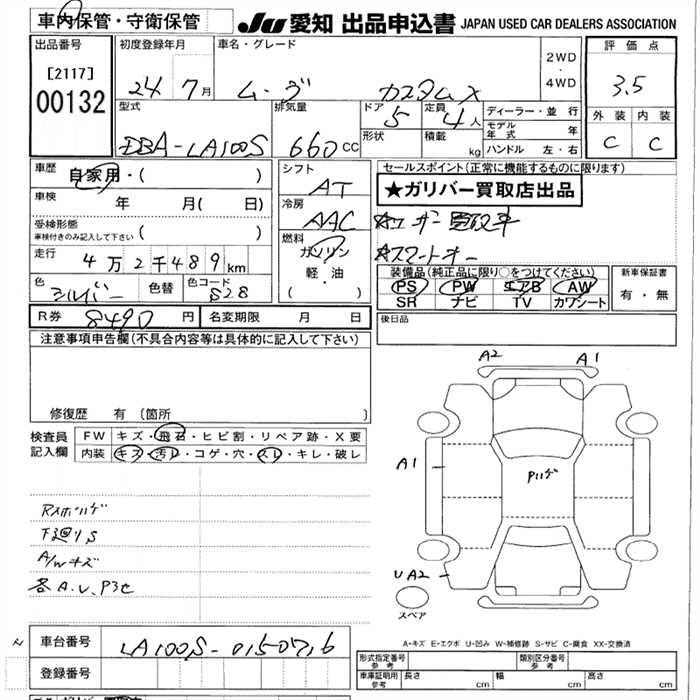 車内保管・守衛保管 JU 愛知 出品申込書 JAPAN USED CAR DEALERS ASSOCIATION
出品番号 初度登録年月 車名・グレード 2WD 4WD 評価点
[2117] 00132 24年7月 ムーヴ カスタムX 3.5
型式 排気量 ドア 定員 ディーラー・並行 外装 内装
EBA-LA100S 660cc 5 4人 モデル年式 年 C C
形状 積載 kg ハンドル 左・右
車歴 自家用・( ) シフト AT セールスポイント(正常に機能するものに限ります)
★ガリバー買取店出品
車検 年 月( 日) 冷房 AAC
受検形態 車検付きのみ記入して下さい ( )
燃料 ガソリン 軽・油 ( )
走行 4万2千489km
装備品(純正品に限り○をつけてください) 新車保証書
色 シルバー 色替 色コード S28 PS PW エアB AW 有・無
SR ナビ TV カワシート
R券 8490円 名変期限 月 日 後日品
注意事項申告欄(不具合内容等は具体的に記入して下さい)
修復歴 有 〔箇所 〕
検査員記入欄 FW キズ・飛石・ヒビ割・リペア跡・X要
内装 キズ・汚レ・コゲ・穴・スレ・キレ・破レ
A2 A1
A1
Pハゲ
Rスポハゲ
下廻りS
A/Wキズ
各A.U.P3セ
UA2
スペア
A-キズ E-エクボ U-凹み W-補修跡 S-サビ C-腐食 XX-交換済
車台番号 LA100S-0150716
形式指定番号 参考 類別区分番号 参考
登録番号 車庫証明用 参考 長さ cm 幅 cm 高さ cm